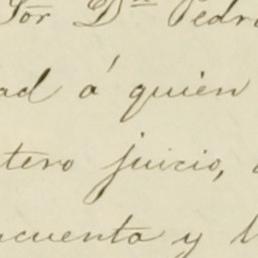 Sor Dn Pedr
ad á quien
tero juicio,
ncuenta y